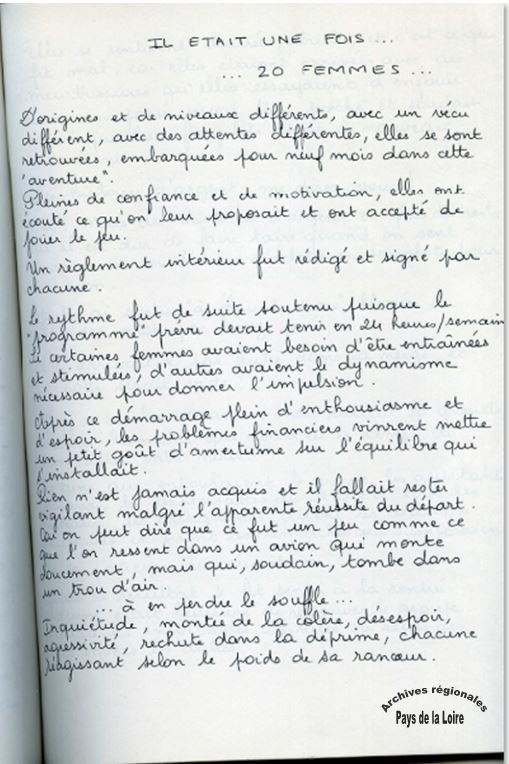 IL ETAIT UNE FOIS ...
... 20 FEMMES ...
D'origines et de niveaux différents, avec un vécu
différent, avec des attentes différentes, elles se sont
retrouvées, embarquées pour neuf mois dans cette
"aventure".
Pleines de confiance et de motivation, elles ont
écouté ce qu'on leur proposait et ont accepté de
jouer le jeu.
Un règlement intérieur fut rédigé et signé par
chacune.
Le rythme fut de suite soutenu puisque le
"programme" prévu devait tenir en 24 heures/semaine
Si certaines femmes avaient besoin d'être entraînées
et stimulées, d'autres avaient le dynamisme
nécessaire pour donner l'impulsion.
Après ce démarrage plein d'enthousiasme et
d'espoir, les problèmes financiers vinrent mettre
un petit goût d'amertume sur l'équilibre qui
s'installait.
Rien n'est jamais acquis et il fallait rester
vigilant malgré l'apparente réussite du départ.
on peut dire que ce fut un peu comme ce
que l'on ressent dans un avion qui monte
doucement, mais qui, soudain, tombe dans
un trou d'air.
... à en perdre le souffle ...
Inquiétude, montée de la colère, désespoir,
agressivité, rechute dans la déprime, chacune
réagissant selon le poids de sa rancœur.
Archives régionales
Pays de la Loire